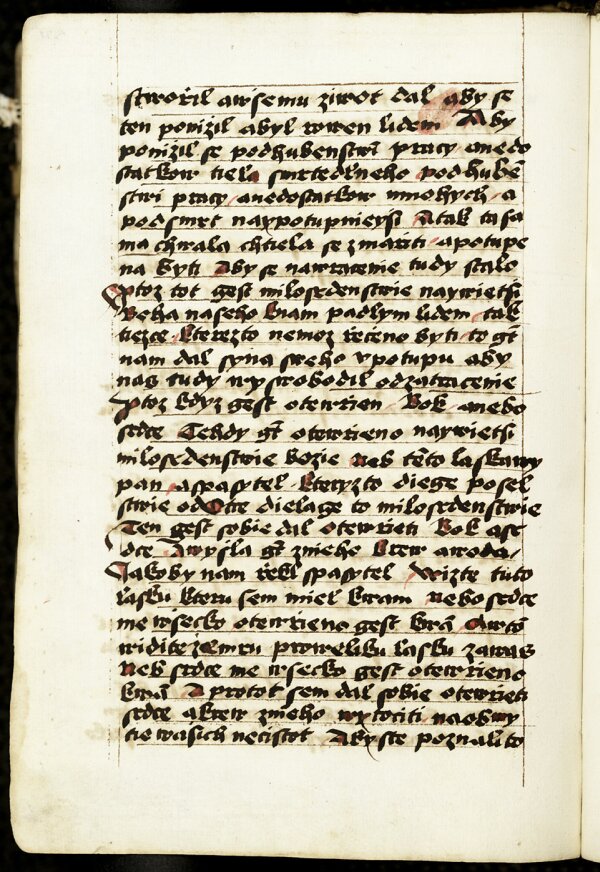 stworil awsemu ziwot dal aby se
ten ponizil abyl rowen lidem Aby
ponizil se podhubenstwi pracy anedo
statkow tiela smrtedlneho podhubē
stwi pracy anedostatkow mnohych a
podsmrt naypotupnieysi A tak ta sa
ma chwala chtiela se zmariti apotupe
na byti Aby se nawracenie tudy stalo
Ptoz tot gest milosrdenstwie naywietsi
Boha naseho knam padlym lidem tak
tiezce kterezto nemoz receno byti to gt
nam dal syna sweho vpotupu aby
nas tudy wyswobodil odzatracenie
Ptoz kdyz gest otewrien Bok anebo
srdce Tehdy gt otewrieno naywietsi
milosrdenstwie bozie Neb tēto laskawy
pan aspasytel kteryzto diege posel
stwie odOtce dielage to milosrdenstwie
Ten gest sobie dal otewrieti Bok asr
dce Awysla gt znieho krew awoda
Jakoby nam rekl spasytel Wizte tuto
lasku kteru sem miel kwam nebo srdce
me wsecko otewrieno gest kwā
widite zemru proweliku lasku zawas
Neb srdce me wsecko gest otewrieno
kwā A protot sem dal sobie otewrieti
srdce akrew znieho wytociti naobmy
tie wasich necistot Abyste poznali to